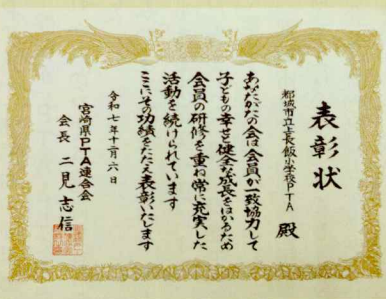 表彰状
都城市立上長飯小学校PTA 殿
あなたがたの会は会員が一致協力して
子どもの幸せと健全な成長をはかるため
会員の研修を重ね常に充実した
活動を続けられています
ここにその功績をたたえ表彰いたします
令和七年十二月六日
宮崎県PTA連合会
会長 二見志信